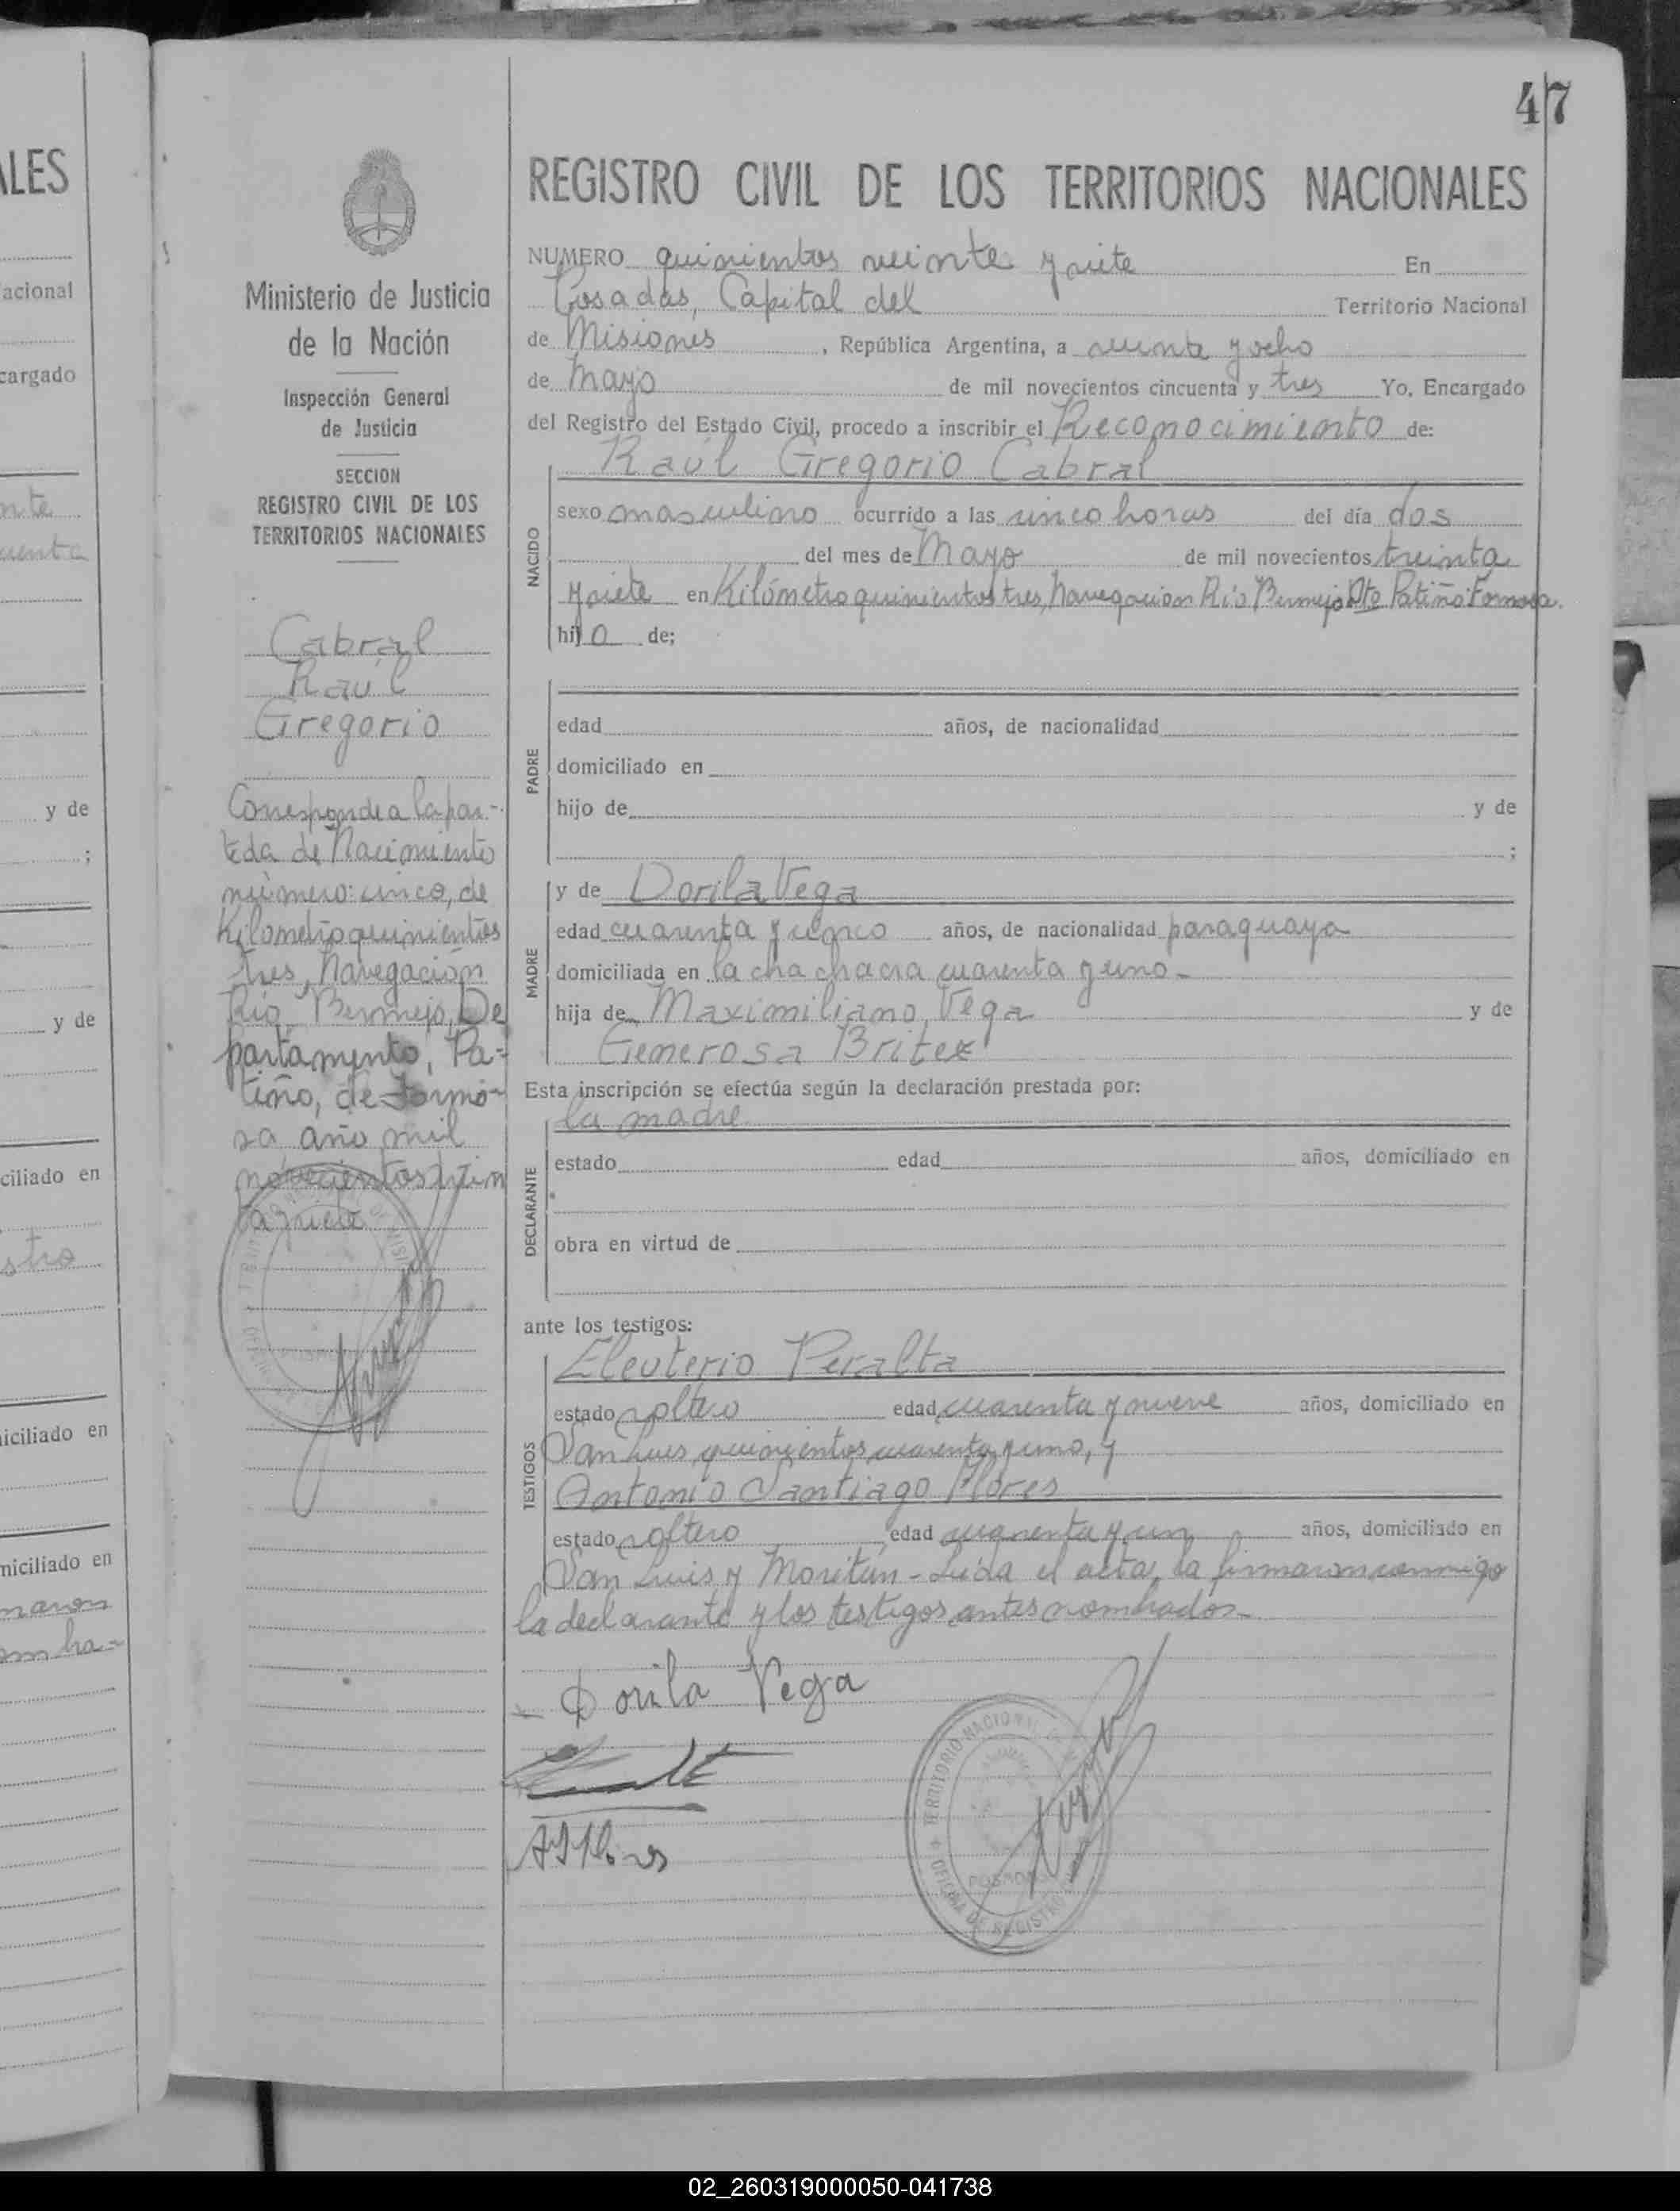 47
REGISTRO CIVIL DE LOS TERRITORIOS NACIONALES
NUMERO quinientos veinte y siete En
Posadas, Capital del Territorio Nacional
de Misiones, República Argentina, a veinte y ocho
de Mayo de mil novecientos cincuenta y tres Yo, Encargado
del Registro del Estado Civil, procedo a inscribir el Reconocimiento de:
Raúl Gregorio Cabral
NACIDO
sexo masculino ocurrido a las cinco horas del día dos
del mes de Mayo de mil novecientos treinta
y siete en Kilómetro quinientos tres, Navegación Río Bermejo Dto Patiño Formosa.
hijo de;
PADRE
edad años, de nacionalidad
domiciliado en
hijo de y de
;
MADRE
y de Dorila Vega
edad cuarenta y cinco años, de nacionalidad paraguaya
domiciliada en la cha chacra cuarenta y uno-
hija de Maximiliano Vega y de
Generosa Britez
Esta inscripción se efectúa según la declaración prestada por:
la madre
DECLARANTE
estado edad años, domiciliado en
obra en virtud de
ante los testigos:
TESTIGOS
Eleuterio Peralta
estado soltero edad cuarenta y nueve años, domiciliado en
San Luis quinientos cuarenta y uno, y
Antonio Santiago Flores
estado soltero edad cuarenta y un años, domiciliado en
San Luis y Moritán - Leída el acta, la firmaron conmigo
la declarante y los testigos antes nombrados-
Dorila Vega
A S Flores
TERRITORIO NACIONAL
POSADAS
OFICINA DE REGISTRO
Ministerio de Justicia
de la Nación
Inspección General
de Justicia
SECCION
REGISTRO CIVIL DE LOS
TERRITORIOS NACIONALES
Cabral
Raúl
Gregorio
Corresponde a la par-
tida de Nacimiento
número: cinco, de
Kilometro quinientos
tres, Navegación
Río Bermejo, De
partamento, Pa=
tiño, de Formo-
sa año mil
novecientos trein
ta y siete
ALES
acional
cargado
nte
uenta
y de
;
y de
ciliado en
stro
iciliado en
niciliado en
maron
ombra=
02_260319000050-041738